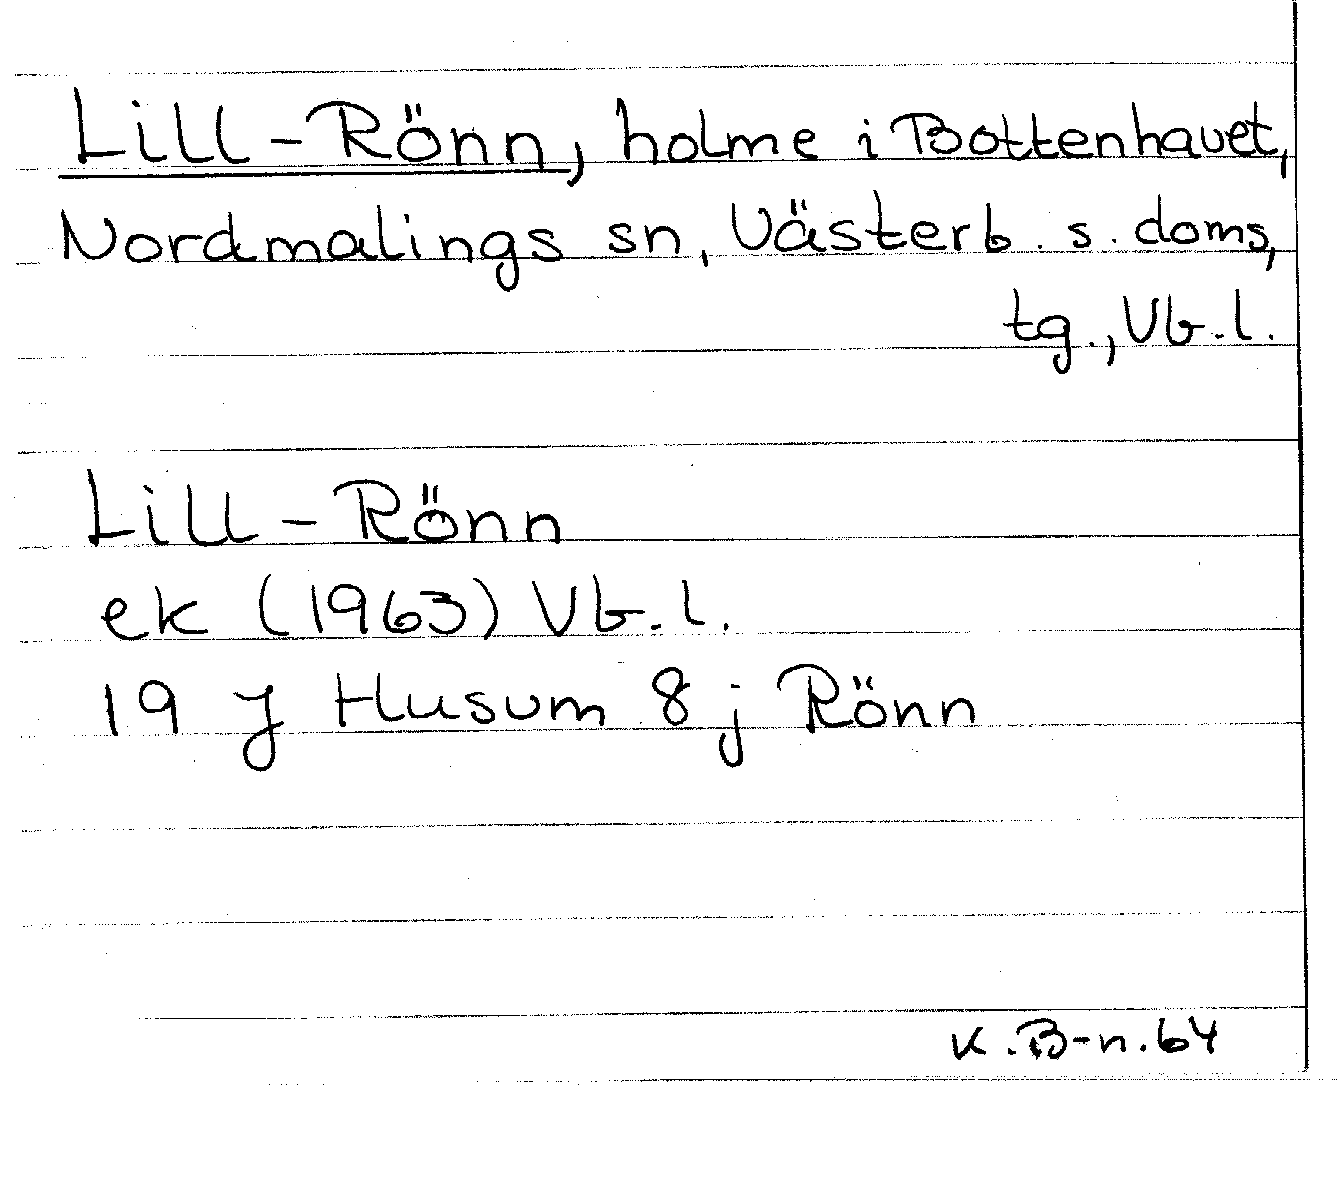 Lill-Rönn, holme i Bottenhavet,
Nordmalings sn, Västerb. s. doms,
tg., Vb. l.
Lill-Rönn
ek (1963) Vb. l.
19 J Husum 8 j Rönn
K. B-n. 64